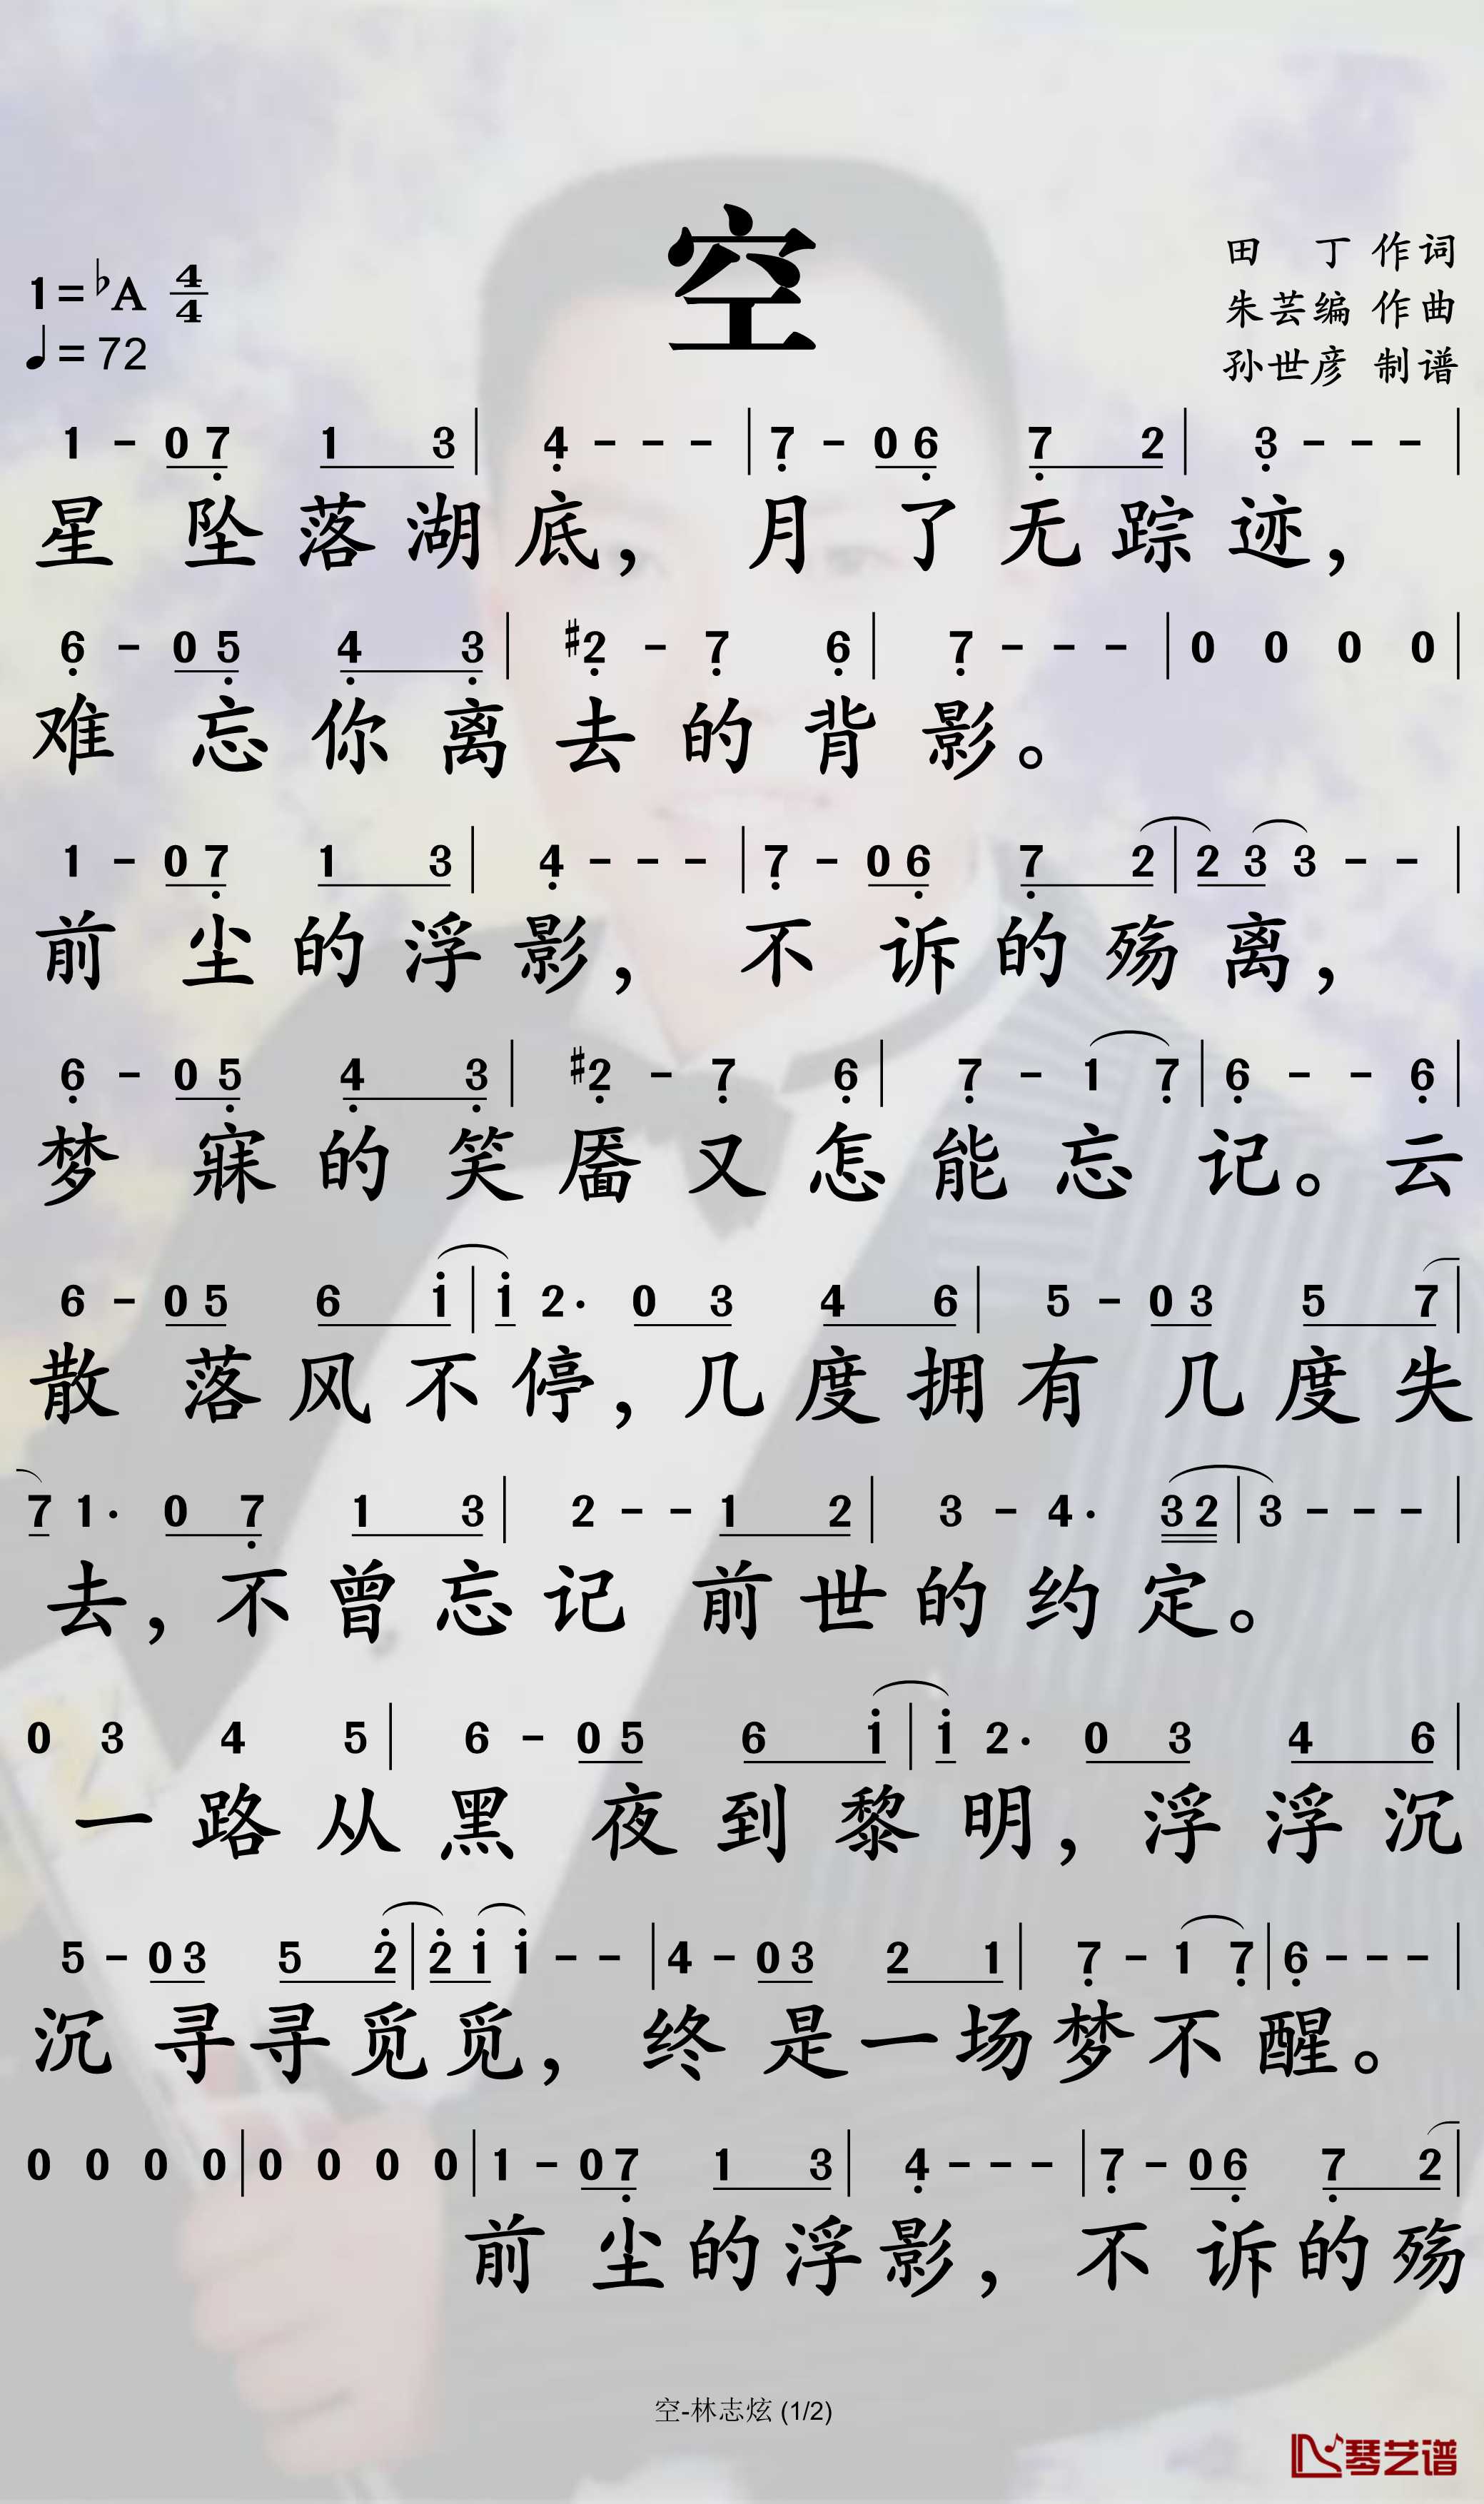 空
田 丁 作词
1=♭A 4/4
朱芸编 作曲
♩=72
孙世彦 制谱
1 - 0 7̣ 1 3 | 4̣ - - - | 7̣ - 0 6̣ 7̣ 2 | 3̣ - - - |
星 坠落湖底， 月 了无踪迹，
6̣ - 0 5̣ 4̣ 3̣ | #2̣ - 7̣ 6̣ | 7̣ - - - | 0 0 0 0 |
难 忘你离去的背影。
1 - 0 7̣ 1 3 | 4̣ - - - | 7̣ - 0 6̣ 7̣ 2 | 2 3 3 - - |
前 尘的浮影， 不 诉的殇离，
6̣ - 0 5̣ 4̣ 3̣ | #2̣ - 7̣ 6̣ | 7̣ - 1 7̣ | 6̣ - - 6̣ |
梦 寐的笑靥又怎能忘记。云
6 - 0 5 6 1̇ | 1̇ 2· 0 3 4 6 | 5 - 0 3 5 7 |
散 落风不停，几度拥有 几度失
7 1· 0 7̣ 1 3 | 2 - - 1 2 | 3 - 4· 3 2 | 3 - - - |
去，不曾忘记 前世的约定。
0 3 4 5 | 6 - 0 5 6 1̇ | 1̇ 2· 0 3 4 6 |
一路从黑 夜到黎明，浮浮沉
5 - 0 3 5 2̇ | 2̇ 1̇ 1̇ - - | 4 - 0 3 2 1 | 7̣ - 1 7̣ | 6̣ - - - |
沉 寻寻觅觅， 终 是一场梦不醒。
0 0 0 0 | 0 0 0 0 | 1 - 0 7̣ 1 3 | 4̣ - - - | 7̣ - 0 6̣ 7̣ 2 |
前 尘的浮影， 不 诉的殇
空-林志炫 (1/2)
琴艺谱